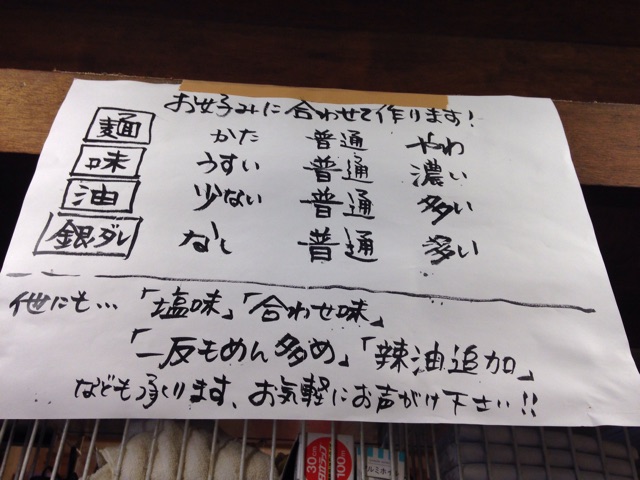 お好みに合わせて作ります!
麺 かた 普通 やわ
味 うすい 普通 濃い
油 少ない 普通 多い
銀ダレ なし 普通 多い
他にも…「塩味」「合わせ味」
「一反もめん多め」「辣油追加」
なども承ります、お気軽にお声がけ下さい!!
30cm
100